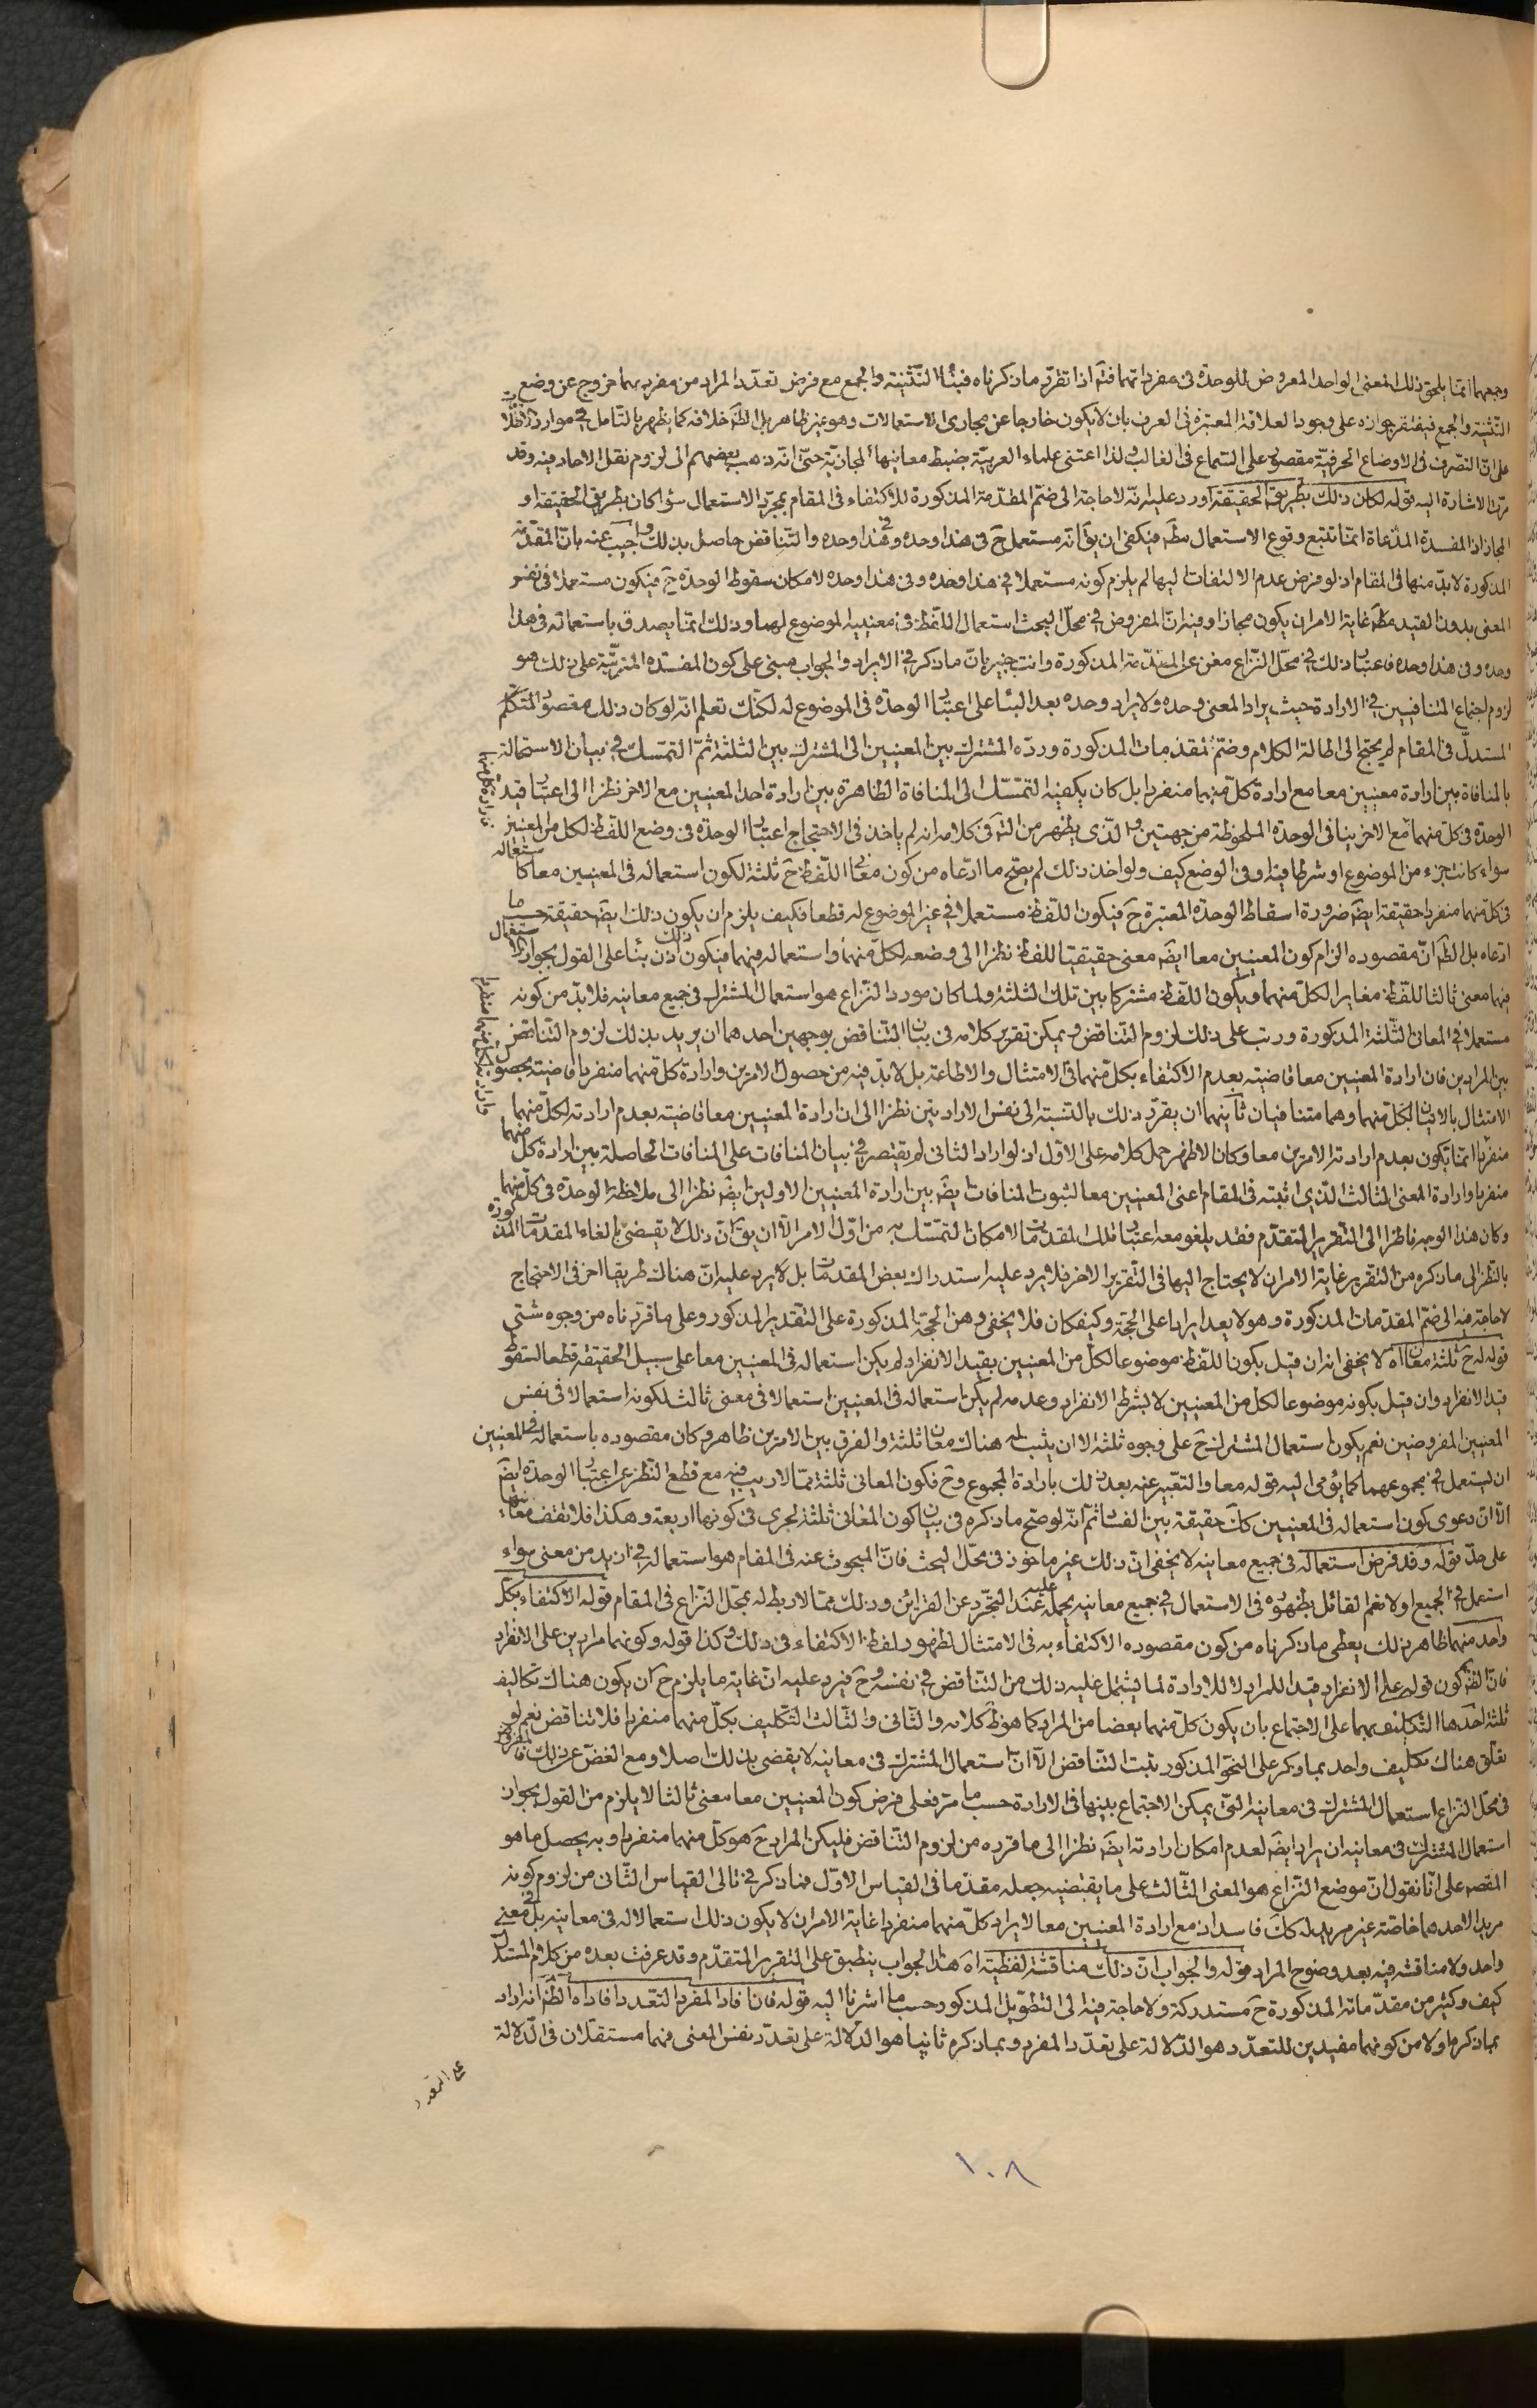 وجمعهما انما يلحق ذلك المعنى الواحد المعروض للوحدة فى مفرداتهما فتم اذا تقرر ما ذكرناه فبناء التثنية والجمع مع فرض تعدد المراد من مفرديهما خروج عن وضع
التثنية والجمع فيفتقر جوازه على وجود العلاقة المعتبرة فى العرف بان لا يكون خارجا عن مجارى الاستعمالات وهو غير ظاهر بل الظ خلافه كما يظهر بالتامل فى موارد
على ان التصرف فى الاوضاع الحرفية مقصور على السماع فى الغالب ولذا اعتنى علماء العربية بضبط معانيها المجازية حتى انه ذهب بعضهم الى لزوم نقل الاحاد فيه وقد
مرت الاشارة اليه قوله لكان ذلك بطريق الحقيقة اورد عليه انه لا حاجة الى ضم المقدمة المذكورة للاكتفاء فى المقام بمجرد الاستعمال سواء كان بطريق الحقيقة او
المجاز اذ المفسدة المدعاة انما تتبع وقوع الاستعمال مط فيكفى ان يق انه مستعمل ح فى هذا وحده وفى هذا وحده والتناقض حاصل بذلك واجيب عنه بان المقدمة
المذكورة لا بد منها فى المقام اذ لو فرض عدم الالتفات اليها لم يلزم كونه مستعملا فى هذا وحده وفى هذا وحده لامكان سقوط الوحدة ح فيكون مستعملا فى نفس
المعنى بدون القيد مط غاية الامر ان يكون مجازا وفيه ان المفروض فى محل البحث استعمال اللفظ فى معنييه الموضوع لهما وذلك انما يصدق باستعماله فى هذا
وحده وفى هذا وحده فاعتبار ذلك فى محل النزاع مغن عن المقدمة المذكورة وانت خبير بان ما ذكر فى الايراد والجواب مبنى على كون المفسدة المترتبة على ذلك هو
لزوم اجتماع المتنافيين فى الارادة حيث يراد المعنى وحده ولا يراد وحده بعد البناء على اعتبار الوحدة فى الموضوع له لكنك تعلم انه لو كان ذلك مقصود المتكلم
المستدل فى المقام لم يحتج الى اطالة الكلام وضم المقدمات المذكورة ورده المشترك بين المعنيين الى المشترك بين الثلثة ثم التمسك فى بيان الاستحالة
بالمنافاة بين ارادة معنيين معا مع ارادة كل منهما منفردا بل كان يكفيه التمسك الى المنافاة الظاهرة بين ارادة احد المعنيين مع الاخر نظرا الى اعتبار قيد
الوحدة فى كل منهما مع الاخر ينافى الوحدة الملحوظة من جهتين والذى يظهر من التم فى كلامه انه لم ياخذ فى الاحتجاج اعتبار الوحدة فى وضع اللفظ لكل من المعنيين
سواء كانت جزء من الموضوع او شرطا فيه او فى الوضع كيف ولو اخذ ذلك لم يصح ما ادعاه من كون معانى اللفظ ح ثلثة لكون استعماله فى المعنيين معا كاستعماله
فى كل منهما منفردا حقيقة ايض ضرورة اسقاط الوحدة المعتبرة ح فيكون اللفظ مستعملا فى غير الموضوع له قطعا فكيف يلزم ان يكون ذلك ايض حقيقة حسب ما
ادعاه بل الظ ان مقصوده الزام كون المعنيين معا ايض معنى حقيقيا للفظ نظرا الى وضعه لكل منهما واستعماله فيهما فيكون اذن بناء على القول بجواز ذلك الاستعمال
فيهما معنى ثالثا للفظ مغايرا لكل منهما ويكون اللفظ مشتركا بين تلك الثلثة ولما كان مورد النزاع هو استعمال المشترك فى جميع معانيه فلا بد من كونه
مستعملا فى المعانى الثلثة المذكورة ورتب على ذلك لزوم التناقض ويمكن تقرير كلامه فى بيان التناقض بوجهين احدهما ان يريد بذلك لزوم التناقض
بين المرادين فان ارادة المعنيين معا قاضية بعدم الاكتفاء بكل منهما فى الامتثال والاطاعة بل لا بد فيه من حصول الامرين وارادة كل منهما منفردا قاضية بحصول
الامتثال بالاتيان بكل منهما وهما متنافيان ثانيهما ان يقرر ذلك بالنسبة الى نفس الارادتين نظرا الى ان ارادة المعنيين معا قاضية بعدم ارادته لكل منهما
منفردا انما تكون بعدم ارادته الامرين معا وكان الاظهر حمل كلامه على الاول اذ لو اراد الثانى لم يقتصر فى بيان المنافات على المنافات الحاصلة بين ارادة كل منهما
منفردا وارادة المعنى الثالث الذى اثبته فى المقام اعنى المعنيين معا لثبوت المنافات ايض بين ارادة المعنيين الاولين ايض نظرا الى ملاحظة الوحدة فى كل منهما
وكان هذا الوجه ناظرا الى التقرير المتقدم فقد يلغو معه اعتبار تلك المقدمات لامكان التمسك به من اول الامر الا ان يق ان ذلك لا يقضى بالغاء المقدمات المذكورة
بالنظر الى ما ذكره من التقرير غاية الامر ان لا يحتاج اليها فى التقرير الاخر فلا يرد عليه استدراك بعض المقدمات بل لا يرد عليه ان هناك طريقا اخر فى الاحتجاج
لا حاجة فيه الى ضم المقدمات المذكورة وهو لا يعد ايرادا على الحجة وكيف كان فلا يخفى وهن الحجة المذكورة على التقدير المذكور وعلى ما قررناه من وجوه شتى
قوله له ح ثلثة معان اه لا يخفى انه ان قيل بكون اللفظ موضوعا لكل من المعنيين بقيد الانفراد لم يكن استعماله فى المعنيين معا على سبيل الحقيقة قطعا لسقوط
قيد الانفراد وان قيل بكونه موضوعا لكل من المعنيين لا بشرط الانفراد وعدمه لم يكن استعماله فى المعنيين استعمالا فى معنى ثالث لكونه استعمالا فى نفس
المعنيين المفروضين نعم يكون استعمال المشترك ح على وجوه ثلثة لا ان يثبت له هناك معان ثلثة والفرق بين الامرين ظاهر وكان مقصوده باستعماله فى المعنيين
ان يستعمل فى مجموعهما كما يؤمى اليه قوله معا والتعبير عنه بعد ذلك بارادة المجموع وح فكون المعانى ثلثة مما لا ريب فيه مع قطع النظر عن اعتبار الوحدة ايض
الا ان دعوى كون استعماله فى المعنيين كك حقيقة بين الفساد ثم انه لو صح ما ذكره فى بيان كون المعانى ثلثة لجرى فى كونها اربعة وهكذا فلا تقف معانيها
على حد قوله وقد فرض استعماله فى جميع معانيه لا يخفى ان ذلك غير ماخوذ فى محل البحث فان المبحوث عنه فى المقام هو استعماله فى ازيد من معنى سواء
استعمل فى الجميع او لا نعم القائل بظهوره فى الاستعمال فى جميع معانيه يحمله عليه عند التجرد عن القرائن وذلك مما لا ربط له بمحل النزاع فى المقام قوله الاكتفاء بكل
واحد منهما ظاهر ذلك يعطى ما ذكرناه من كون مقصوده الاكتفاء به فى الامتثال لظهور لفظ الاكتفاء فى ذلك وكذا قوله وكونهما مرادين على الانفراد
فان الظ كون قوله على الانفراد قيدا للمراد لا للارادة لما يشتمل عليه ذلك من التناقض فى نفسه وح فيرد عليه ان غاية ما يلزم ح ان يكون هناك تكاليف
ثلثة احدها التكليف بهما على الاجتماع بان يكون كل منهما بعضا من المراد كما هو ظ كلامه والثانى والثالث التكليف بكل منهما منفردا فلا تناقض نعم لو
تعلق هناك تكليف واحد بما ذكر على النحو المذكور يثبت التناقض الا ان استعمال المشترك فى معانيه لا يقضى بذلك اصلا ومع الغض عن ذلك فالمفروض
فى محل النزاع استعمال المشترك فى معانيه التى يمكن الاجتماع بينها فى الارادة حسب ما مر فعلى فرض كون المعنيين معا معنى ثالثا لا يلزم من القول بجواز
استعمال المشترك فى معانيه ان يراد ايض لعدم امكان ارادته ايض نظرا الى ما قرره من لزوم التناقض فليكن المراد ح هو كل منهما منفردا وبه يحصل ما هو
المقصد على انا نقول ان موضع النزاع هو المعنى الثالث على ما يقتضيه جعله مقدما فى القياس الاول فما ذكر فى تالى القياس الثانى من لزوم كونه
مريدا لاحدهما خاصة غير مريد له كك فاسد اذ مع ارادة المعنيين معا لا يراد كل منهما منفردا غاية الامر ان لا يكون ذلك استعمالا له فى معانيه بل فى معنى
واحد ولا مناقشة فيه بعد وضوح المراد قوله والجواب ان ذلك مناقشة لفظية اه هذا الجواب ينطبق على التقرير المتقدم وقد عرفت بعده من كلام المستدل
كيف وكثير من مقدماته المذكورة ح مستدركة ولا حاجة فيه الى التطويل المذكور حسب ما اشرنا اليه قوله فان افاد المفرد التعدد افاداه الظ انه اراد
بما ذكر اولا من كونهما مفيدين للتعدد هو الدلالة على تعدد المفرد وبما ذكره ثانيا هو الدلالة على تعدد نفس المعنى فهما مستقلان فى الدلالة
على التعدد
١٠٨